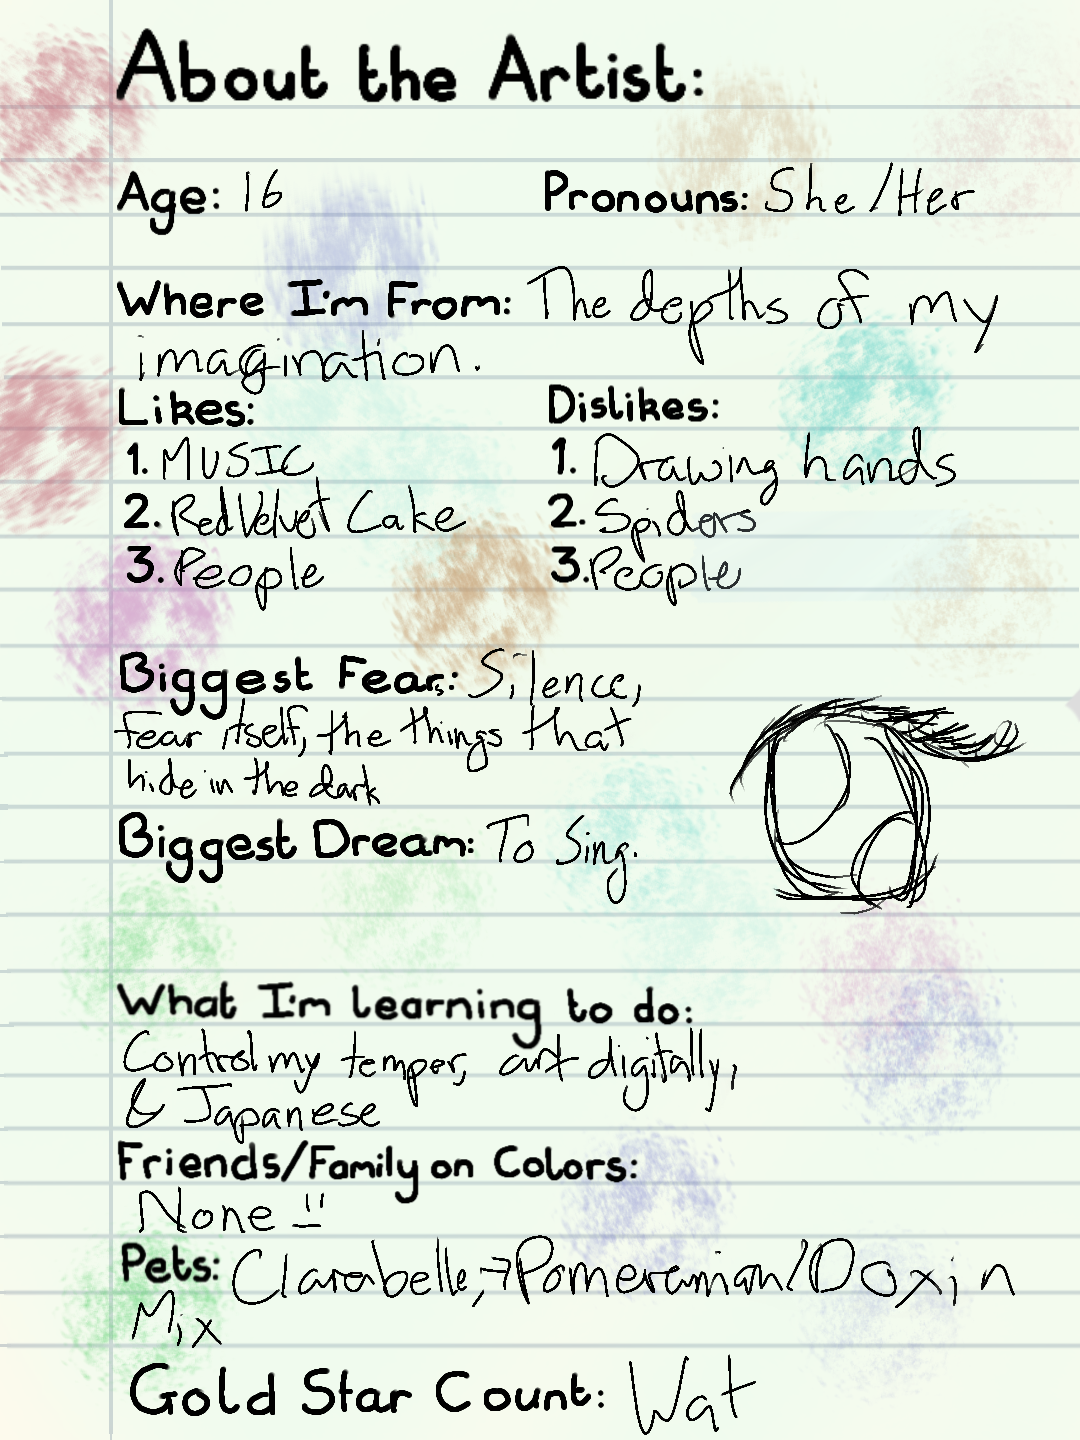 About the Artist:
Age: 16 Pronouns: She/Her
Where I'm From: The depths of my
imagination.
Likes: Dislikes:
1. MUSIC 1. Drawing hands
2. Red Velvet Cake 2. Spiders
3. People 3. People
Biggest Fear: Silence,
fear itself, the things that
hide in the dark
Biggest Dream: To Sing.
What I'm learning to do:
Control my temper, art digitally,
& Japanese
Friends/Family on Colors:
None :|
Pets: Clarabelle, → Pomeranian/Doxin
Mix
Gold Star Count: Wat